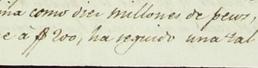 ña como diez millones de pesos,
e a $200, ha seguido una tal